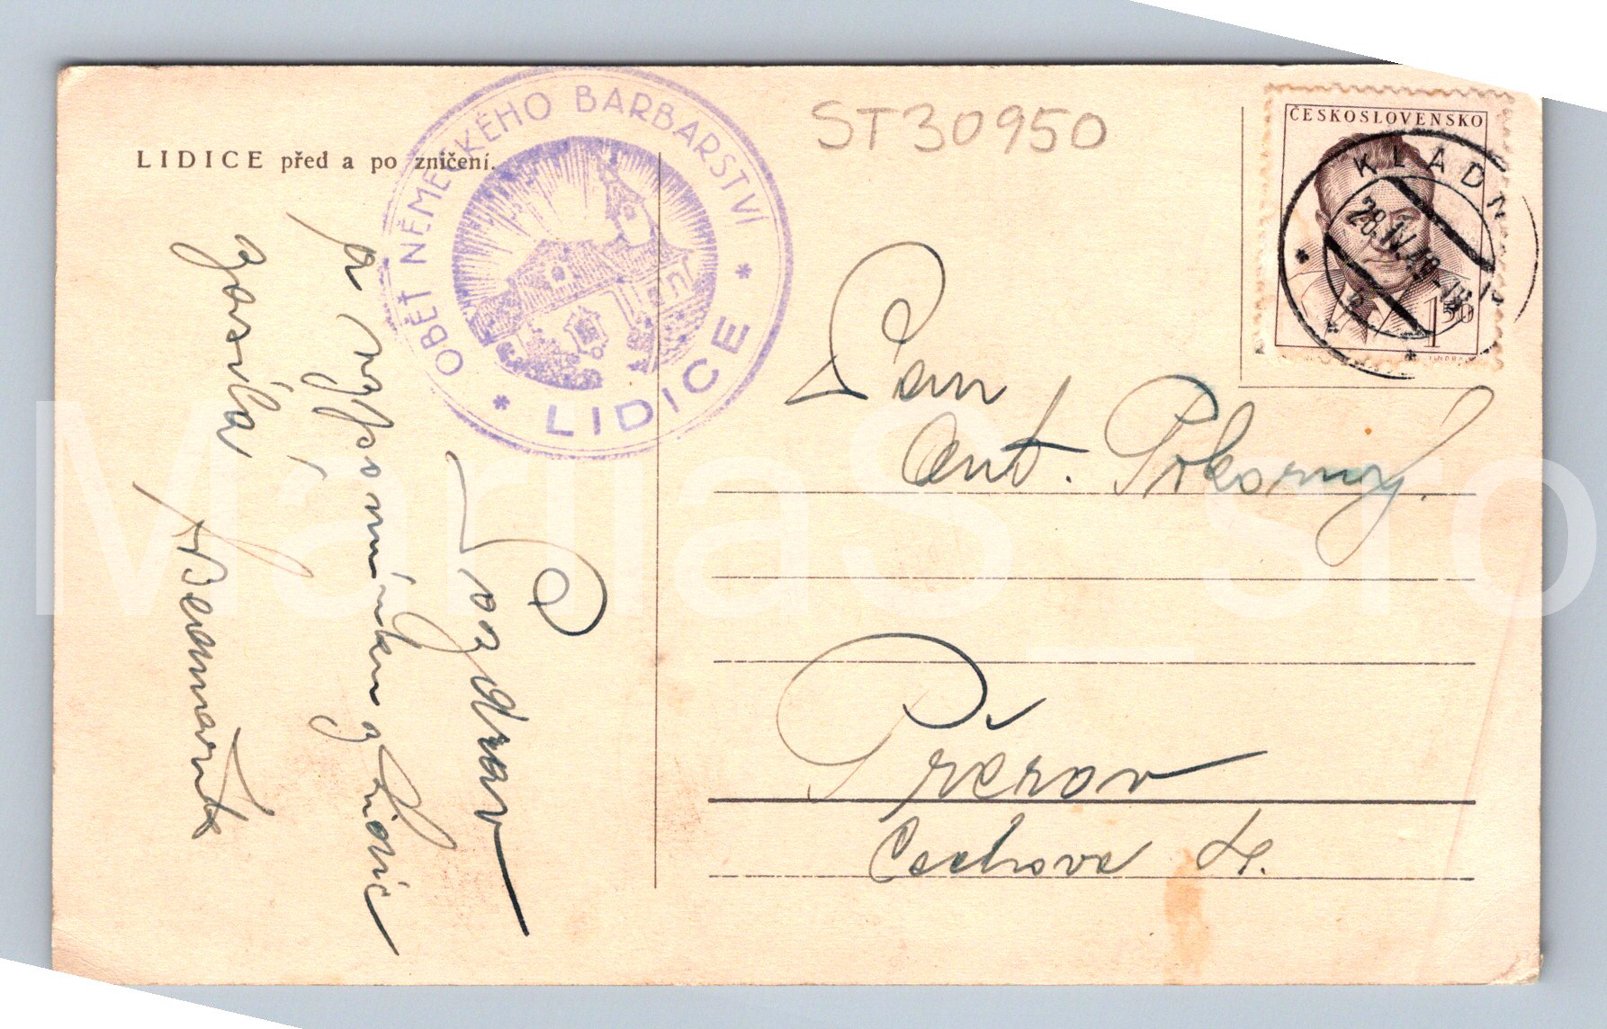 LIDICE před a po zničení.
OBĚŤ NĚMECKÉHO BARBARSTVÍ
* LIDICE *
ST30950
ČESKOSLOVENSKO
KLADNO
28.IV.49-18
1 50
Pozdrav
a vzpomínku z Lidic
zasílá
Pan
Ant. Pokorný.
Přerov
Čechova 4.
MarijaS_sro